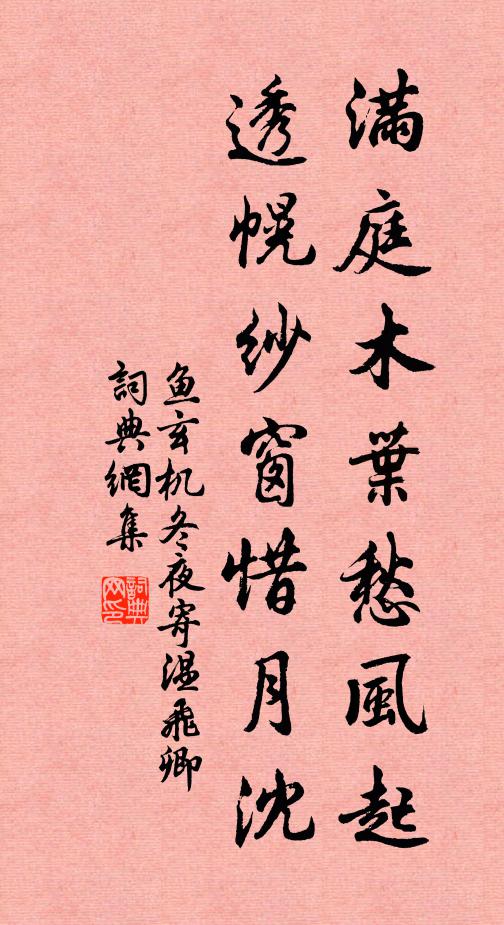 滿庭木葉愁風起
透幌紗窗惜月沈
魚玄机冬夜寄溫飛卿
詞典網集
詞典網印